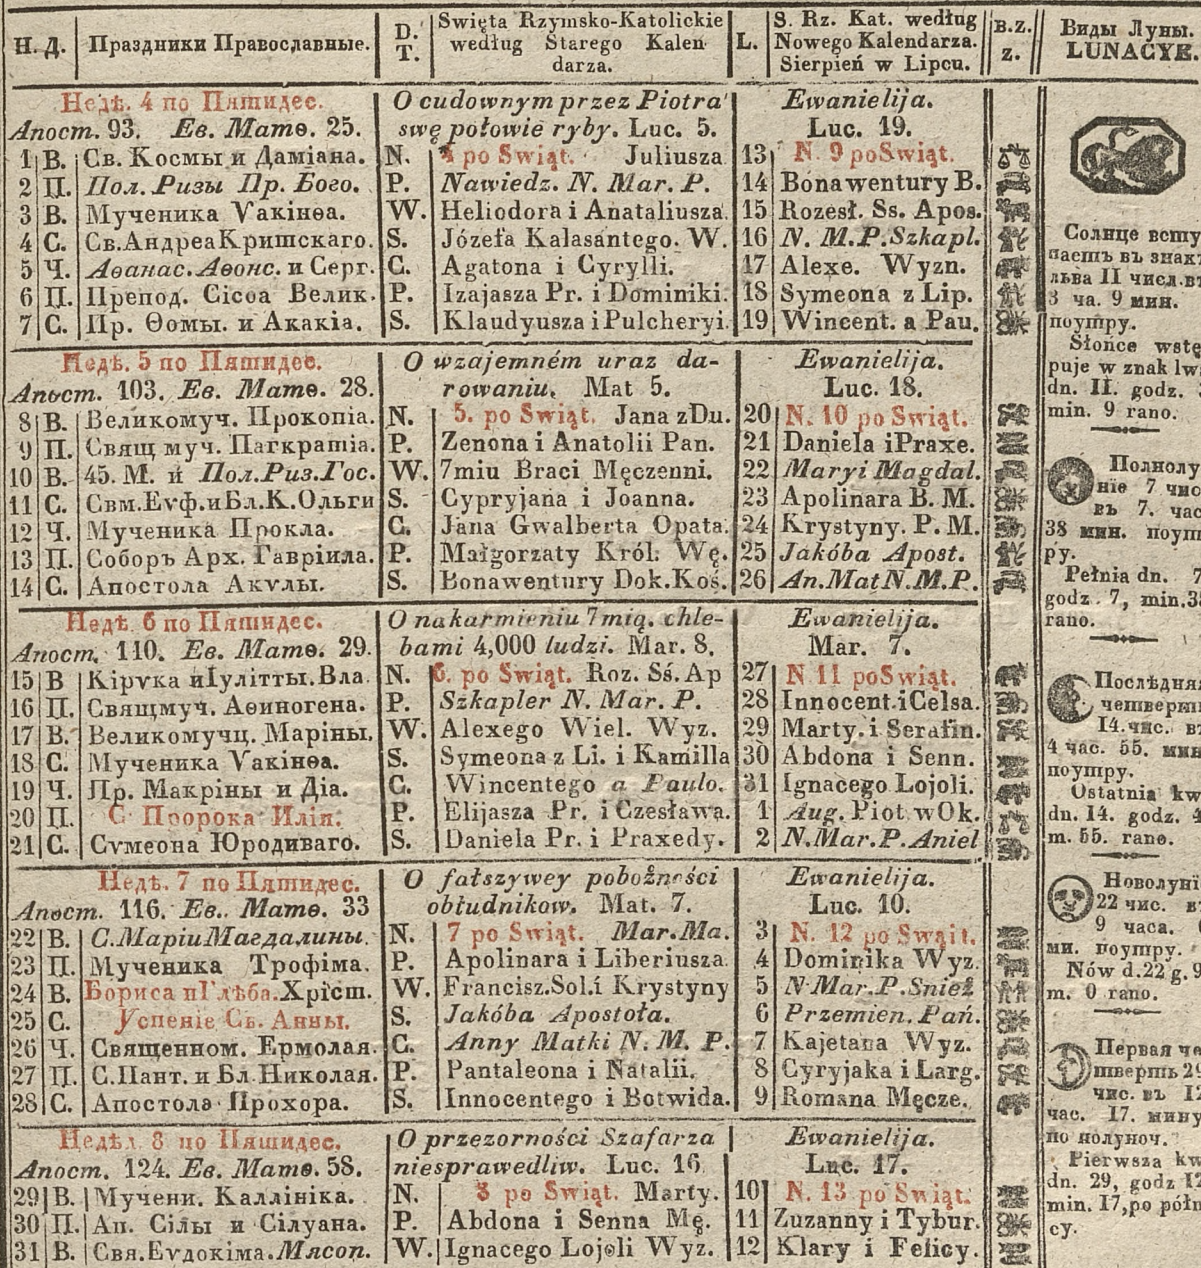 Н. Д. Праздники Православные. D. T. Swięta Rzymsko-Katolickie według Starego Kalendarza. L. S. Rz. Kat. według Nowego Kalendarza. Sierpień w Lipcu. B.Z. z. Виды Луны. LUNACYE.
Недѣ. 4 по Пятидес. O cudownym przez Piotra Ewanielija.
Апост. 93. Ев. Матѳ. 25. swę połowie ryby. Luc. 5. Luc. 19.
1 В. Св. Космы и Даміана. N. 4 po Swiąt. Juliusza 13 N. 9 po Swiąt.
2 П. Пол. Ризы Пр. Бого. P. Nawiedz. N. Mar. P. 14 Bonawentury B.
3 В. Мученика Ѵакінѳа. W. Heliodora i Anataliusza. 15 Rozesł. Ss. Apos.
4 С. Св. Андреа Критскаго. S. Józefa Kalasantego. W. 16 N. M. P. Szkapl.
5 Ч. Аѳанас. Аѳонс. и Серг. C. Agatona i Cyrylli. 17 Alexe. Wyzn.
6 П. Препод. Сісоа Велик. P. Izajasza Pr. i Dominiki. 18 Symeona z Lip.
7 С. Пр. Ѳомы. и Акакіа. S. Klaudyusza i Pulcheryi. 19 Wincent. a Pau.
Недѣ. 5 по Пятидес. O wzajemném uraz da- Ewanielija.
Апост. 103. Ев. Матѳ. 28. rowaniu. Mat 5. Luc. 18.
8 В. Великомуч. Прокопіа. N. 5. po Swiąt. Jana z Du. 20 N. 10 po Swiąt.
9 П. Свящ муч. Пагкратіа. P. Zenona i Anatolii Pan. 21 Daniela i Praxe.
10 В. 45. М. и Пол. Риз. Гос. W. 7miu Braci Męczenni. 22 Maryi Magdal.
11 С. Свм. Еѵф. и Бл. К. Ольги S. Cypryjana i Joanna. 23 Apolinara B. M.
12 Ч. Мученика Прокла. C. Jana Gwalberta Opata. 24 Krystyny. P. M.
13 П. Соборъ Арх. Гавріила. P. Małgorzaty Król. Wę. 25 Jakóba Apost.
14 С. Апостола Акѵлы. S. Bonawentury Dok. Koś. 26 An. Mat N. M. P.
Недѣ. 6 по Пятидес. O nakarmieniu 7mią. chle- Ewanielija.
Апост. 110. Ев. Матѳ. 29. bami 4,000 ludzi. Mar. 8. Mar. 7.
15 В Кірѵка и Іулітты. Вла. N. 6. po Swiąt. Roz. Sś. Ap 27 N 11 po Swiąt.
16 П. Священмуч. Аѳиногена. P. Szkapler N. Mar. P. 28 Innocent. i Celsa.
17 В. Великомучц. Маріны. W. Alexego Wiel. Wyz. 29 Marty. i Serafin.
18 С. Мученика Ѵакінѳа. S. Symeona z Li. i Kamilla 30 Abdona i Senn.
19 Ч. Пр. Макріны и Діа. C. Wincentego a Paulo. 31 Ignacego Lojoli.
20 П. С Пророка Илія. P. Elijasza Pr. i Czesława. 1 Aug. Piot. w Ok.
21 С. Сѵмеона Юродиваго. S. Daniela Pr. i Praxedy. 2 N. Mar. P. Aniel
Недѣ. 7 по Пятидес. O fałszywey pobożności Ewanielija.
Апост. 116. Ев. Матѳ. 33 obłudnikow. Mat. 7. Luc. 10.
22 В. С. Маріи Магдалины. N. 7 po Swiąt. Mar. Ma. 3 N. 12 po Swąit.
23 П. Мученика Трофіма. P. Apolinara i Liberiusza. 4 Dominika Wyz.
24 В. Бориса и Глѣба. Хріст. W. Francisz. Sol. i Krystyny 5 N Mar. P. Snież
25 С. Успеніе Св. Анны. S. Jakóba Apostoła. 6 Przemien. Pań.
26 Ч. Священном. Ермолая. C. Anny Matki N. M. P. 7 Kajetana Wyz.
27 П. С. Пант. и Бл. Николая. P. Pantaleona i Natalii. 8 Cyryjaka i Larg.
28 С. Апостола Прохора. S. Innocentego i Botwida. 9 Romana Męcze.
Недѣл. 8 по Пятидес. O przezorności Szafarza Ewanielija.
Апост. 124. Ев. Матѳ. 58. niesprawedliw. Luc. 16 Luc. 17.
29 В. Мучени. Каллініка. N. 8 po Swiąt. Marty. 10 N. 13 po Swiąt.
30 П. Ап. Сілы и Сілуана. P. Abdona i Senna Mę. 11 Zuzanny i Tybur.
31 В. Свя. Еѵдокіма. Мясоп. W. Ignacego Lojoli Wyz. 12 Klary i Felicy.
Солнце всту
паетъ въ знакъ
льва II числ. въ
3 ча. 9 мин.
поутру.
Słońce wstę
puje w znak lwa
dn. II. godz.
min. 9 rano.
Полнолу
ніе 7 чис
въ 7. час
38 мин. поут
ру.
Pełnia dn. 7
godz. 7, min. 38
rano.
Послѣдняя
четверть
14. чис. въ
4 час. 55. мин
поутру.
Ostatnia kw
dn. 14. godz. 4
m. 55. rano.
Новолуні
22 чис. въ
9 часа. 0
ми. поутру.
Nów d. 22 g. 9
m. 0 rano.
Первая че
тверть 29
чис. въ 12
час. 17. мину
по полуноч.
Pierwsza kw
dn. 29, godz 12
min. 17, po półn
cy.